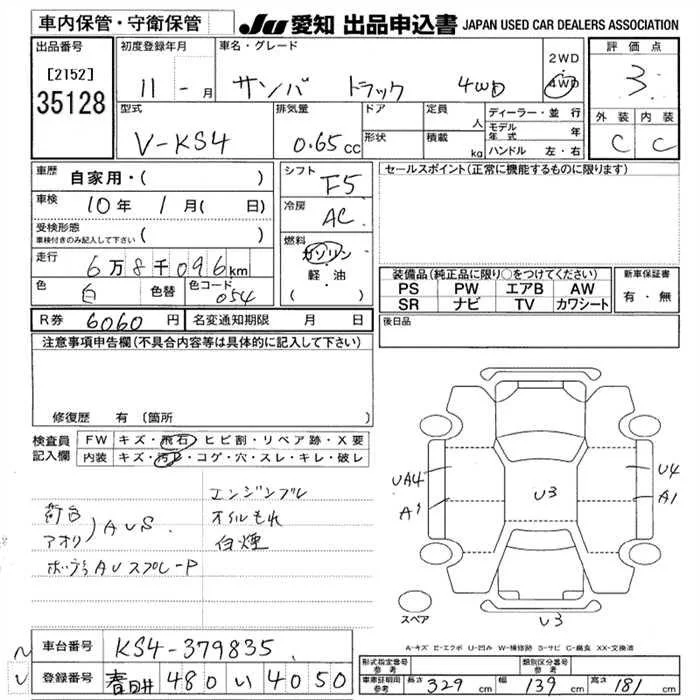 車内保管・守衛保管
JU 愛知 出品申込書 JAPAN USED CAR DEALERS ASSOCIATION
出品番号
[2152]
35128
初度登録年月
11 - 月
車名・グレード
サンバ トラック 4WD
2WD
4WD
評価点
3
外装 内装
C C
型式
V-KS4
排気量
0.65 cc
ドア
形状
定員
人
積載
kg
ディーラー・並行
モデル年式 年
ハンドル 左・右
車歴
自家用・( )
車検
10 年 1 月( 日)
受検形態
車検付きのみ記入して下さい ( )
走行
6 万 8 千 096 km
色
白
色替
色コード
054
シフト
F5
冷房
AC
燃料
ガソリン
・
軽・油
( )
セールスポイント(正常に機能するものに限ります)
装備品(純正品に限り○をつけてください)
PS PW エアB AW
SR ナビ TV カワシート
新車保証書
有・無
R券 6060 円 名変通知期限 月 日
後日品
注意事項申告欄(不具合内容等は具体的に記入して下さい)
修復歴 有 (箇所 )
検査員
記入欄
FW キズ・飛石・ヒビ割・リペア跡・X要
内装 キズ・汚レ・コゲ・穴・スレ・キレ・破レ
荷台
アオリ
) AUS
AUスプレーP
エンジンブル
オイルもれ
白煙
UA4
A1
U3
U4
A1
U3
スペア
A-キズ E-エクボ U-凹み W-補修跡 S-サビ C-腐食 XX-交換済
車台番号 KS4-379835
登録番号 春日井 480 い 4050
形式指定番号
参考
類別区分番号
参考
車庫証明用
参考
長さ 329 cm 幅 139 cm 高さ 181 cm